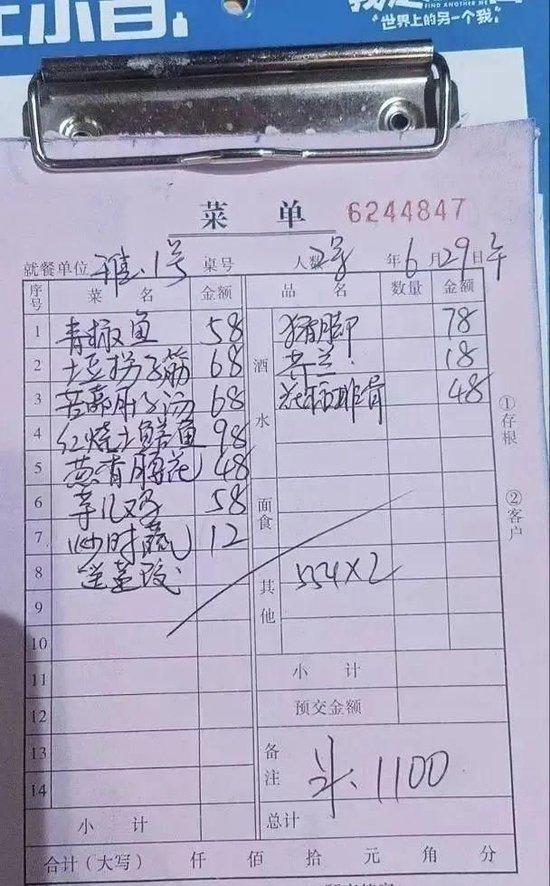 FIND ANOTHER ME
“世界上的另一个我”
菜 单 6244847
就餐单位 雅.1号 桌号 人数 2号 年 6 月 29 日 午
序号 菜 名 金额 品 名 数量 金额
1 青椒鱼 58 猪脚 78
2 土豆拐子筋 68 酒 18
3 苦藠肚子汤 68 排骨 48
4 红烧土鳝鱼 98 水
5 葱香腰花 48
6 芋儿鸡 58 面
7 炒时蔬 12 食
8 送 其 554×2
9 他
10
11 小 计
12 预交金额
13 备
14 注 斗.1100
小 计 总计
合计(大写) 仟 佰 拾 元 角 分
①存根
②客户